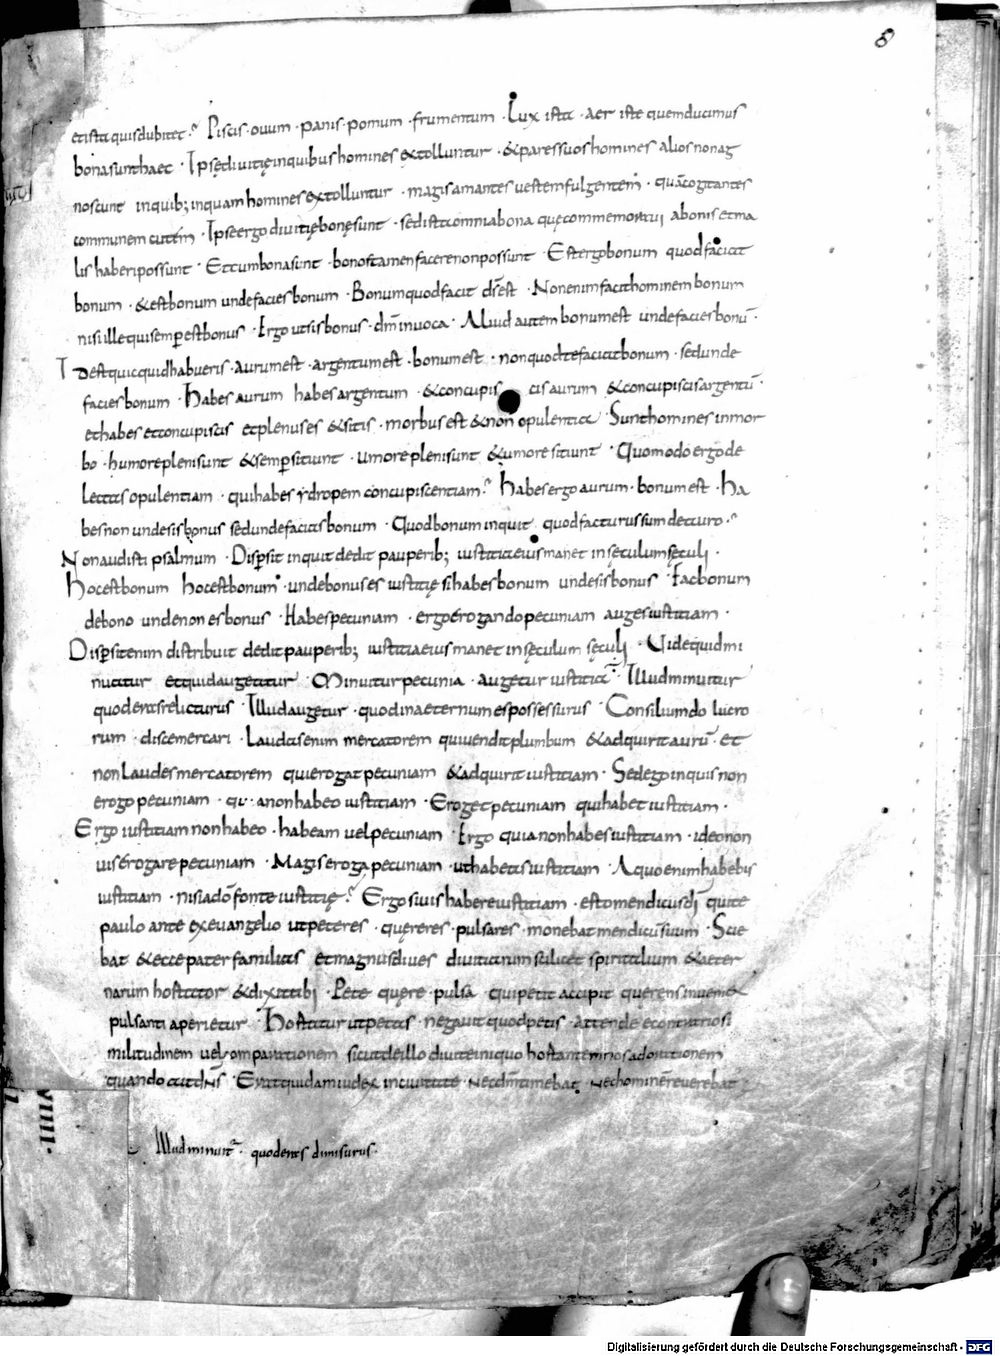 8
et ista quis dubitet? Piscis · ovum · panis · pomum · frumentum · Lux ista · aer iste quem ducimus
bona sunt haec · Ipsę divitię in quibus homines extolluntur · & pares suos homines alios non ag
noscunt in quib; inquam homines extolluntur · magis amantes vestem fulgentem · quā cogitantes
communem cutem · Ipsę ergo divitię bonę sunt · sed ista omnia bona quę commemoravi a bonis et ma
lis haberi possunt · Et cum bona sint · bonos tamen facere non possunt · Est ergo bonum quod faciat
bonum · & est bonum unde facies bonum · Bonum quod facit d̄s est · Non enim facit hominem bonum
nisi ille qui semp est bonus · Ergo ut sis bonus · dm̄ invoca · Aliud autem bonum est unde facies bonū ·
Id est quicquid habueris · aurum est · argentum est · bonum est · non quod te faciat bonum · sed unde
facies bonum · Habes aurum habes argentum · & concupis cis aurum & concupiscis argentū ·
et habes et concupiscis et plenus es & sitis · morbus est & non opulentia · Sunt homines in mor
bo · humore pleni sunt & semp sitiunt · umore pleni sunt & umore sitiunt · Quomodo ergo de
lectat opulentiam · qui habes ydropem concupiscentiam? Habes ergo aurum · bonum est · Ha
bes non unde sis bonus sed unde facias bonum · Quod bonum inquit quod facturus sum de auro ·?
Non audisti psalmum · Dispsit inquit dedit pauperib; iustitia eius manet in sęculum sęculi ·
Hoc est bonum hoc est bonum · unde bonus es iustitię si habes bonum unde sis bonus · Fac bonum
de bono unde non es bonus · Habes pecuniam · ergo erogando pecuniam auges iustitiam ·
Dispsit enim distribuit dedit pauperib; iustitia eius manet in sęculum sęculi · Vide quid mi
nuatur et quid augeatur · Minuitur pecunia · augetur iustitia ·? Illud minuitur
quod eras relicturus · Illud augetur · quod in aeternum es possessurus · Consilium do lucro
rum · disce mercari · Laudas enim mercatorem qui vendit plumbum & adquirit aurū · et
non laudes mercatorem qui erogat pecuniam & adquirit iustitiam · Sed ego inquis non
erogo pecuniam · quia non habeo iustitiam · Eroget pecuniam qui habet iustitiam ·
Ergo iustitiam non habeo · habeam vel pecuniam · Ergo quia non habes iustitiam · ideo non
vis erogare pecuniam · Magis eroga pecuniam · ut habeas iustitiam · A quo enim habebis
iustitiam · nisi a dō fonte iustitię? Ergo si vis habere iustitiam · esto mendicus dī qui te
paulo ante ex evangelio ut peteres · quęreres · pulsares · monebat mendicū suum · Scie
bat & ecce pater familias et magnus dives divitiarum scilicet spiritalium & aeter
narum hortatur & dixit tibi · Pete quęre pulsa qui petit accipit quęrens invenit
pulsanti aperietur · Hortatur ut petas · negavit quod petis · attende e contrario si
militudinem vel comparationem sicut de illo divite iniquo hortantem nos ad orationem
quando ait dn̄s · Erat quidam iudex in civitate nec dm̄ timebat nec hominē reverebat
VIIII
Illud minuit̄ · quod eras dimisurus ·
Digitalisierung gefördert durch die Deutsche Forschungsgemeinschaft - DFG